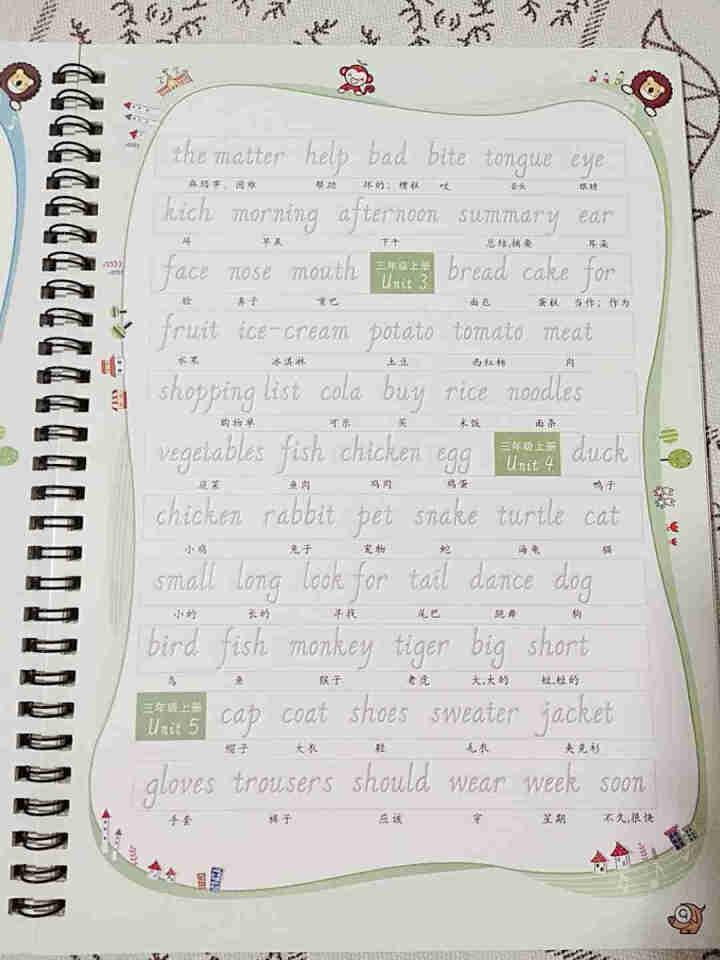 the matter help bad bite tongue eye
麻烦事，困难 帮助 坏的；糟糕 咬 舌头 眼睛
kich morning afternoon summary ear
踢 早晨 下午 总结,摘要 耳朵
face nose mouth 三年级上册 Unit 3 bread cake for
脸 鼻子 嘴巴 面包 蛋糕 当作；作为
fruit ice-cream potato tomato meat
水果 冰淇淋 土豆 西红柿 肉
shopping list cola buy rice noodles
购物单 可乐 买 米饭 面条
vegetables fish chicken egg 三年级上册 Unit 4 duck
蔬菜 鱼肉 鸡肉 鸡蛋 鸭子
chicken rabbit pet snake turtle cat
小鸡 兔子 宠物 蛇 海龟 猫
small long look for tail dance dog
小的 长的 寻找 尾巴 跳舞 狗
bird fish monkey tiger big short
鸟 鱼 猴子 老虎 大,大的 短,短的
三年级上册 Unit 5 cap coat shoes sweater jacket
帽子 大衣 鞋 毛衣 夹克衫
gloves trousers should wear week soon
手套 裤子 应该 穿 星期 不久,很快